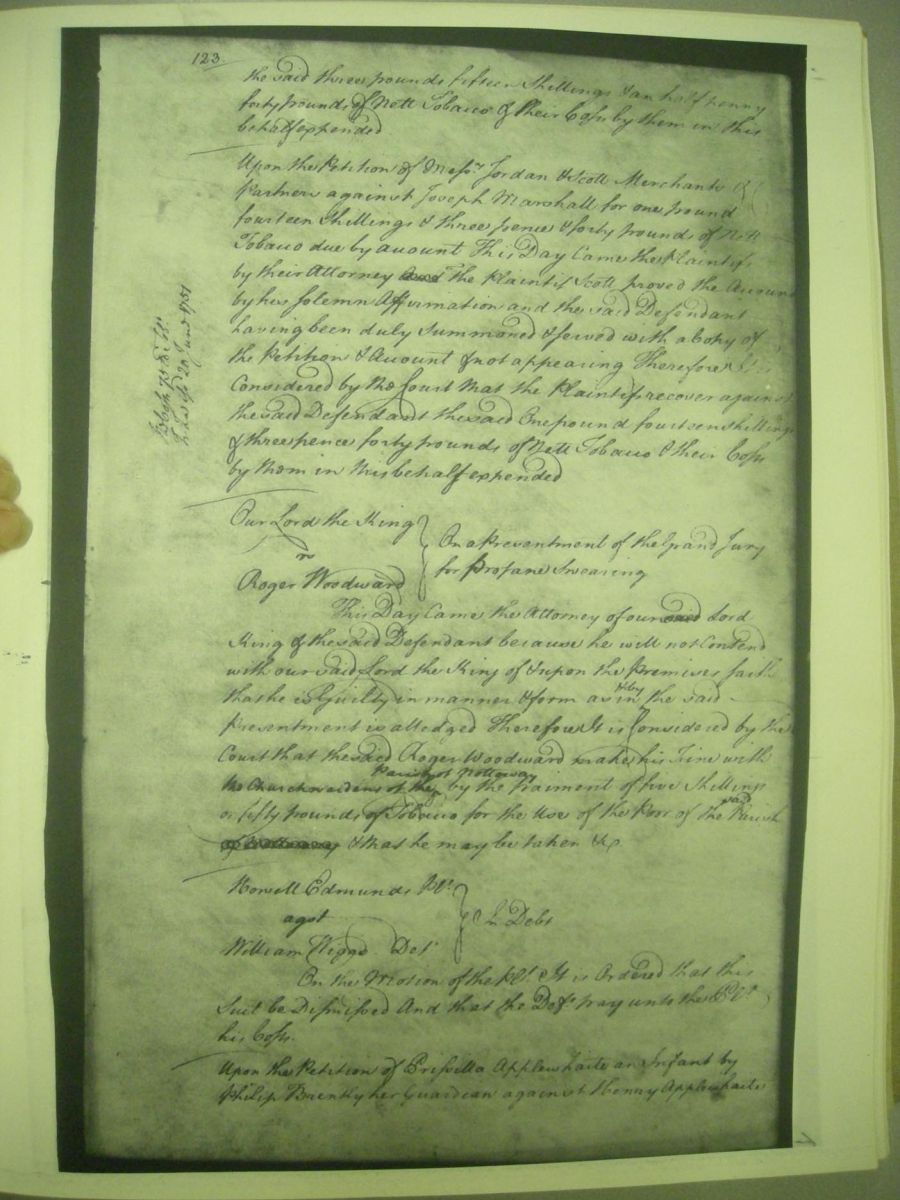 123.
the said three pounds fifteen Shillings & an half penny
forty pounds of Nett Tobacco & their Costs by them in this
behalf expended
Upon the Petition of Mess.rs Jordan & Scott Merchants &
Partners against Joseph Marshall for one pound
fourteen Shillings & three pence & forty pounds of Nett
Tobacco due by account This Day Came the Plaintifs
by their Attorney and The Plaintif Scott proved the Account
by his solemn Affirmation and the said Defendant
having been duly Summoned & served with a Copy of
the Petition & Account & not appearing Therefore It is
Considered by the Court that the Plaintifs recover against
the said Defendant the said One pound fourteen shillings
& three pence forty pounds of Nett Tobacco & their Costs
by them in this behalf expended
20 June 1751
Our Lord the King
vs
Roger Woodward
On a Presentment of the Grand Jury
for Profane Swearing
This Day Came the Attorney of our said Lord
King & the said Defendant because he will not Contend
with our said Lord the King of & upon the Premises saith
that he is Guilty in manner & form as in & by the said
Presentment is alledged Therefore It is Considered by the
Court that the said Roger Woodward make his Fine with
the Churchwardens of the Parish of Nottoway by the Paiment of five Shillings
or fifty pounds of Tobacco for the Use of the Poor of the said Parish
of Nottoway & that he may be taken &c
Howell Edmunds Pl.t
agst
William Wiggs Def.t
In Debt
On the Motion of the Pl.t It is Ordered that this
Suit be Dismissed And that the Def.t pay unto the Pl.t
his Costs.
Upon the Petition of Priscilla Applewhaite an Infant by
Philip Brantly her Guardian against Henry Applewhaite